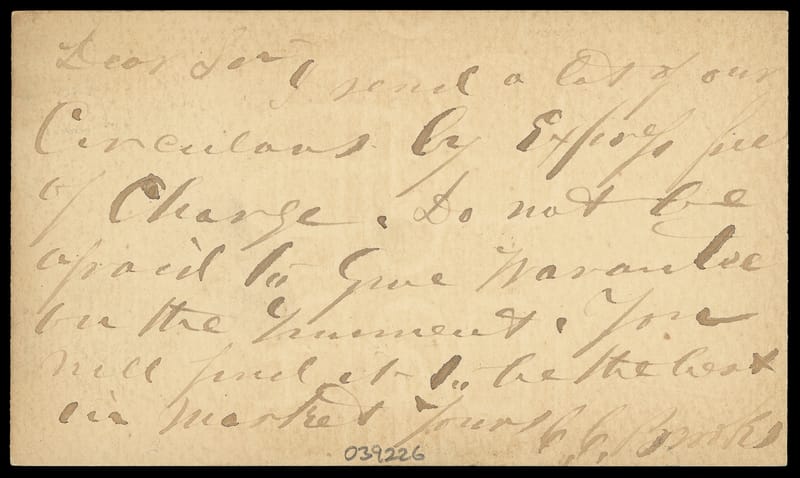 Dear Sir I send a lot of our
Circulars by Express free
of Charge. Do not be
afraid to Give Warantee
on the Liniment. You
will find it to be the best
in Market Yours C. C. Brooks
039226